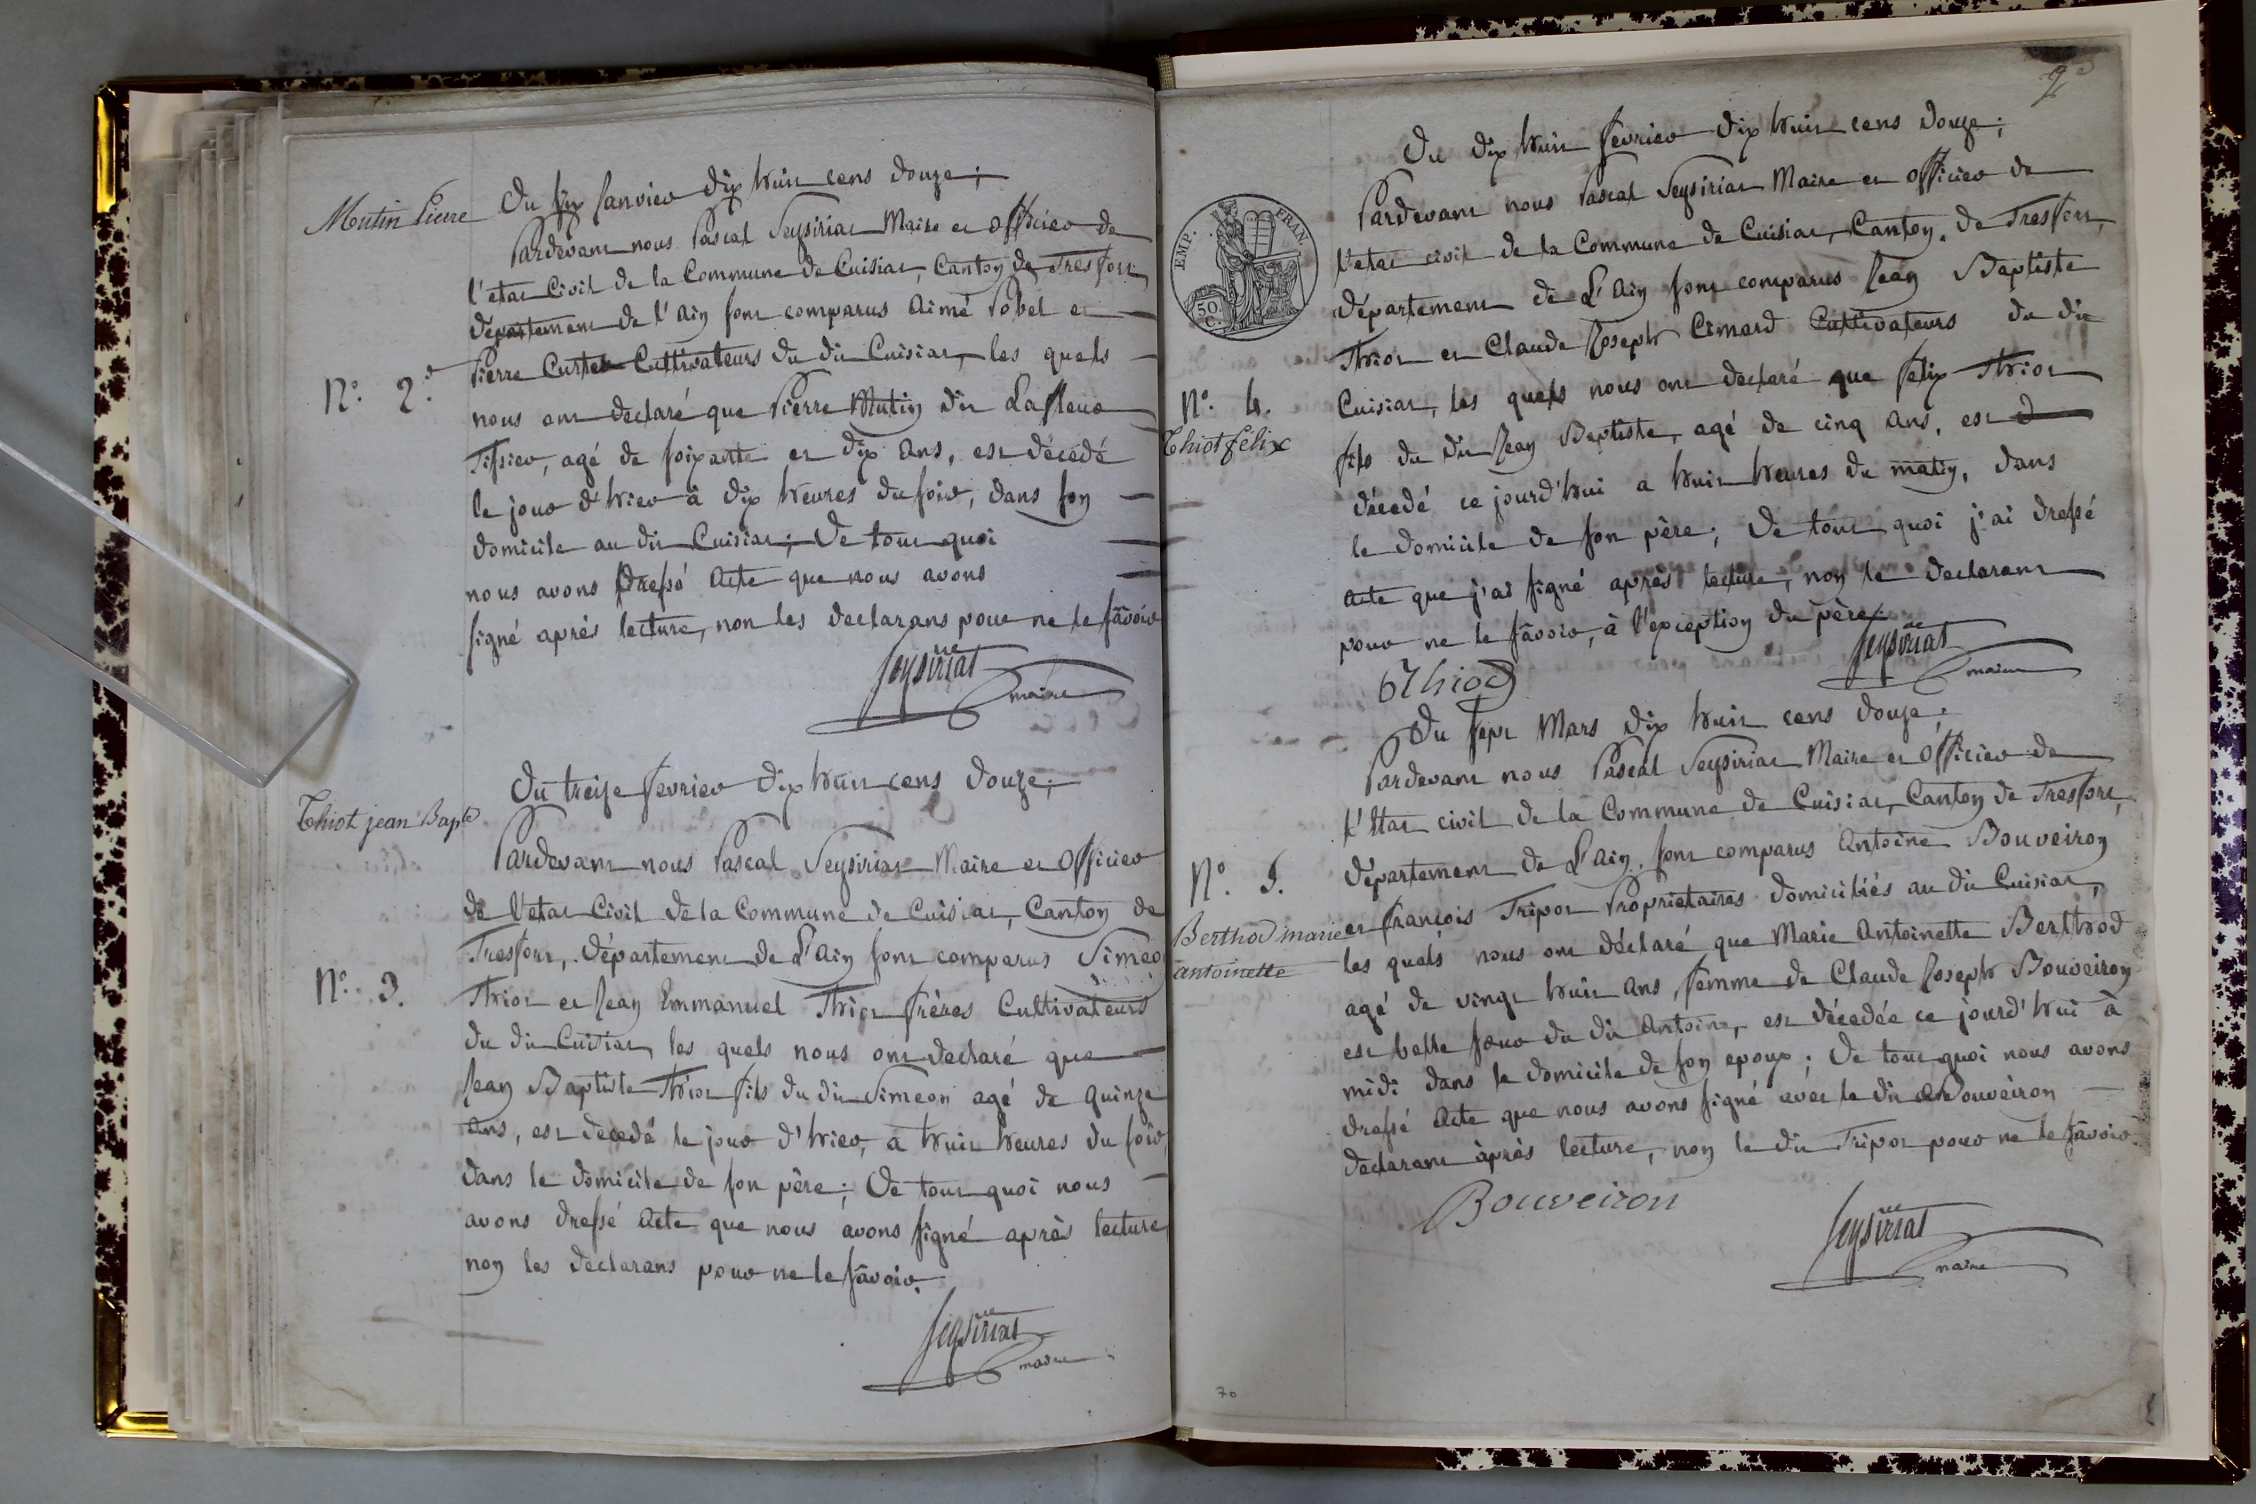 Mutin Pierre
Du six Janvier dix huit cens douze;
Pardevant nous Pascal Seysiriat Maire et officier de
l'etat Civil de la Commune de Cuisiat, Canton de Tresfort,
département de l'Ain sont comparus Aimé Pobel et
Pierre Curtet Cultivateurs du dit Cuisiat, les quels
N.° 2.e
nous ont declaré que Pierre Mutin dit Lafleur
Tissier, agé de soixante et dix ans, est décédé
le jour d'hier à dix heures du soir, dans son
domicile au dit Cuisiat; De tout quoi
nous avons dressé acte que nous avons
signé après lecture, non les declarans pour ne le sâvoir
Seysiriat
maire
Thiot jean Bapte
Du treize fevrier dix huit cens douze;
Pardevant nous Pascal Seysiriat Maire et officier
de l'etat Civil de la Commune de Cuisiat, Canton de
Tresfort, département de L'Ain sont comparus Simeon
N.° 3.
Thiot et Jean Emmanuel Thiot frères Cultivateurs
du dit Cuisiat, les quels nous ont declaré que
Jean Baptiste Thiot fils du dit Simeon agé de quinze
ans, est decedé le jour d'hier, à huit heures du soir,
dans le domicile de son père; De tout quoi nous
avons dressé acte que nous avons signé après lecture
non les declarans pour ne le sâvoir.
Seysiriat
maire
2
Du dix huit fevrier dix huit cens douze;
Pardevant nous Pascal Seysiriat Maire et officier de
l'etat civil de la Commune de Cuisiat, Canton de Tresfort,
département de L'Ain sont comparus Jean Baptiste
Thiot et Claude Joseph Cimard Cultivateurs du dit
EMP. FRAN.
50 C.
N.° 4.
Thiot félix
Cuisiat, les quels nous ont declaré que felix Thiot
fils du dit Jean Baptiste, agé de cinq ans, est d
décedé ce jourd'hui a huit heures du matin, dans
le domicile de son père; De tout quoi j'ai dressé
acte que j'ai signé après lecture, non le declarant
pour ne le sâvoir, à l'exception du père.
Seysiriat
maire
bThiod
Du sept Mars dix huit cens douze;
Pardevant nous Pascal Seysiriat Maire et Officier de
l'Etat civil de la Commune de Cuisiat, Canton de Tresfort,
département de L'Ain, sont comparus Antoine Bouveiron
N.° 5.
Berthod marie
antoinette
et françois Tripot Propriétaires domiciliés au dit Cuisiat,
les quels nous ont déclaré que Marie Antoinette Berthod
agé de vingt huit ans, femme de Claude Joseph Bouveiron
est belle sœur du dit Antoine, est décedée ce jourd'hui à
midi dans le domicile de son epoux; De tout quoi nous avons
dressé acte que nous avons signé avec le dit Bouveiron
declarant après lecture, non le dit Tripot pour ne le sâvoir.
Bouveiron
Seysiriat
maire
70